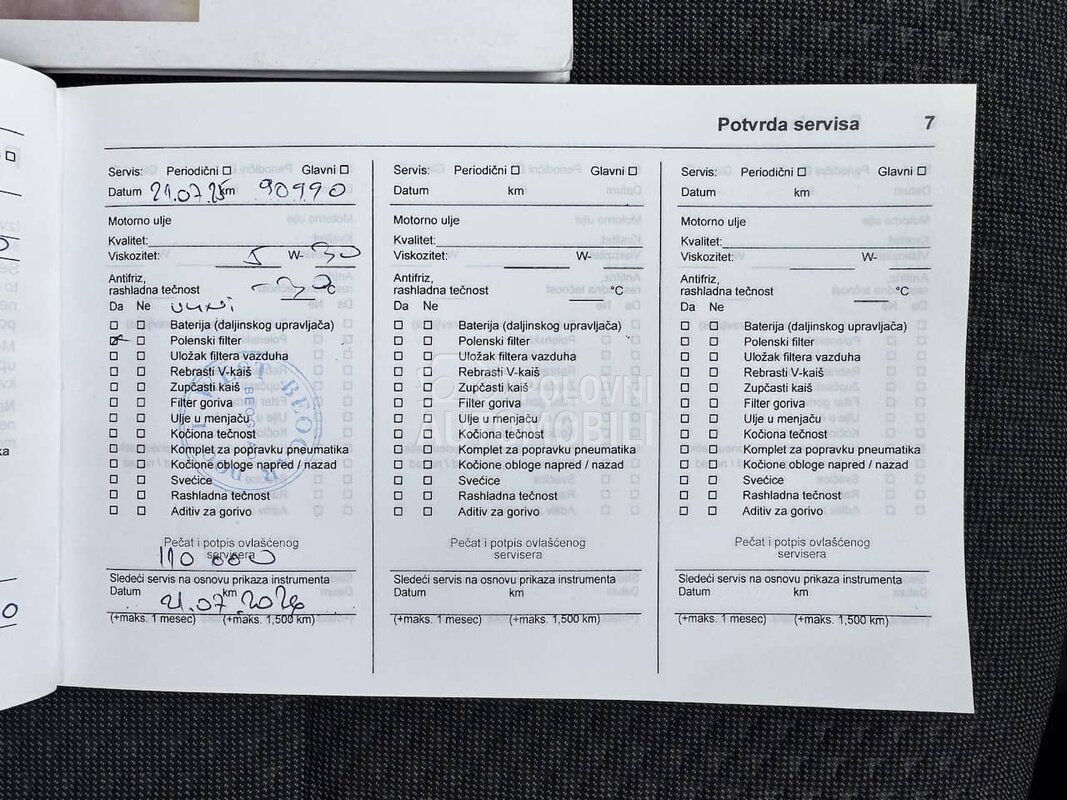 Potvrda servisa 7
Servis: Periodični Glavni
Datum 21.07.25 km 90990
Motorno ulje
Kvalitet:
Viskozitet: 5 W- 30
Antifriz,
rashladna tečnost °C
Da Ne
Baterija (daljinskog upravljača)
Polenski filter
Uložak filtera vazduha
Rebrasti V-kaiš
Zupčasti kaiš
Filter goriva
Ulje u menjaču
Kočiona tečnost
Komplet za popravku pneumatika
Kočione obloge napred / nazad
Svećice
Rashladna tečnost
Aditiv za gorivo
Pečat i potpis ovlašćenog
servisera
110 000
Sledeći servis na osnovu prikaza instrumenta
Datum km
21.07.2026
(+maks. 1 mesec) (+maks. 1,500 km)
BEOGRAD
Servis: Periodični Glavni
Datum km
Motorno ulje
Kvalitet:
Viskozitet: W-
Antifriz,
rashladna tečnost °C
Da Ne
Baterija (daljinskog upravljača)
Polenski filter
Uložak filtera vazduha
Rebrasti V-kaiš
Zupčasti kaiš
Filter goriva
Ulje u menjaču
Kočiona tečnost
Komplet za popravku pneumatika
Kočione obloge napred / nazad
Svećice
Rashladna tečnost
Aditiv za gorivo
Pečat i potpis ovlašćenog
servisera
Sledeći servis na osnovu prikaza instrumenta
Datum km
(+maks. 1 mesec) (+maks. 1,500 km)
POLOVNI
AUTOMOBILI
Servis: Periodični Glavni
Datum km
Motorno ulje
Kvalitet:
Viskozitet: W-
Antifriz,
rashladna tečnost °C
Da Ne
Baterija (daljinskog upravljača)
Polenski filter
Uložak filtera vazduha
Rebrasti V-kaiš
Zupčasti kaiš
Filter goriva
Ulje u menjaču
Kočiona tečnost
Komplet za popravku pneumatika
Kočione obloge napred / nazad
Svećice
Rashladna tečnost
Aditiv za gorivo
Pečat i potpis ovlašćenog
servisera
Sledeći servis na osnovu prikaza instrumenta
Datum km
(+maks. 1 mesec) (+maks. 1,500 km)